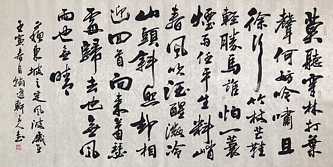 莫聽穿林打葉
聲何妨吟嘯且
徐行竹杖芒鞋
輕勝馬誰怕一蓑
煙雨任平生料峭
春風吹酒醒微冷
山頭斜照却相
迎回首向來蕭瑟
處歸去也無風
雨也無晴
蘇東坡之定風波
壬寅春月